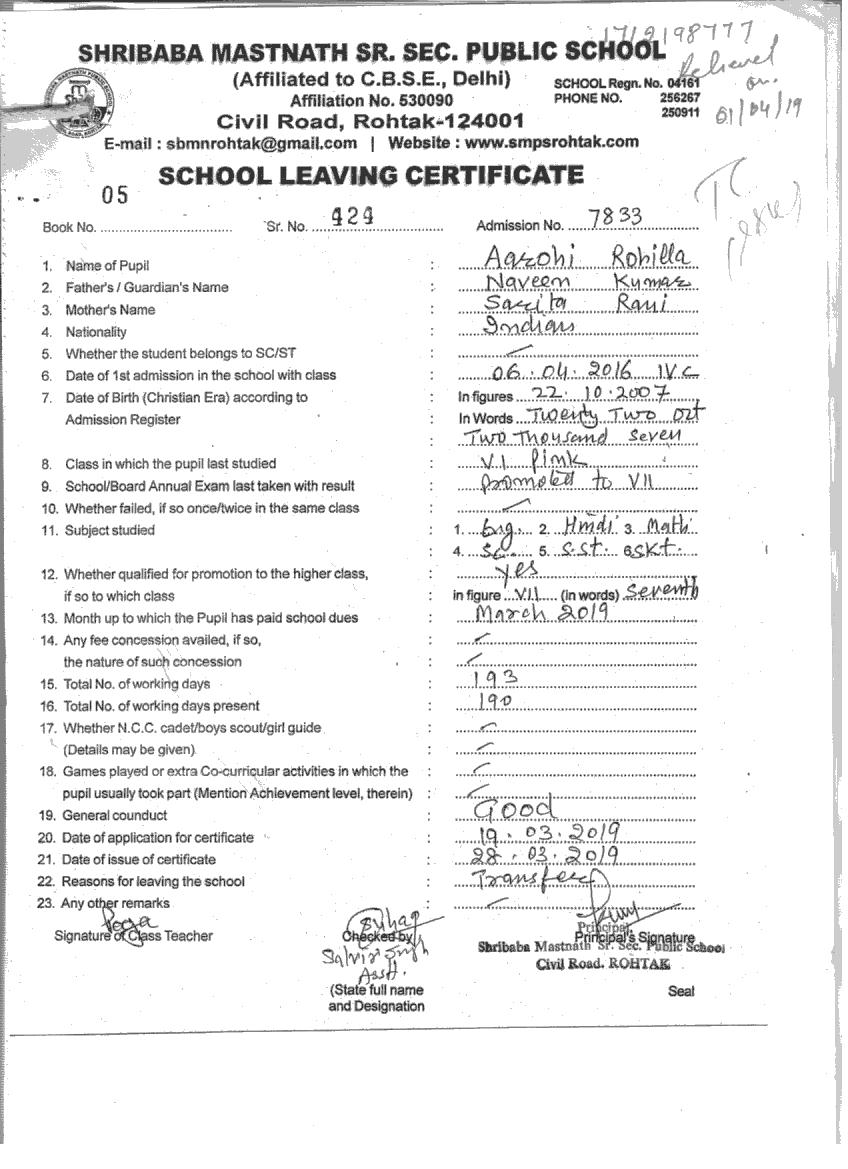 17/2198777
SHRIBABA MASTNATH SR. SEC. PUBLIC SCHOOL
Relieved
on.
01/04/19
(Affiliated to C.B.S.E., Delhi)
SCHOOL Regn. No. 04161
Affiliation No. 530090
PHONE NO. 256267
250911
Civil Road, Rohtak-124001
E-mail : sbmnrohtak@gmail.com | Website : www.smpsrohtak.com
SCHOOL LEAVING CERTIFICATE
TC
Book No. 05 Sr. No. 424 Admission No. 7833
1. Name of Pupil : Aarohi Rohilla
2. Father's / Guardian's Name : Naveen Kumar
3. Mother's Name : Sarita Rani
4. Nationality : Indian
5. Whether the student belongs to SC/ST :
6. Date of 1st admission in the school with class : 06.04.2016 IV C
7. Date of Birth (Christian Era) according to : In figures 22.10.2007
Admission Register In Words Twenty Two Oct
Two Thousand Seven
8. Class in which the pupil last studied : VI Pink
9. School/Board Annual Exam last taken with result : Promoted to VII
10. Whether failed, if so once/twice in the same class :
11. Subject studied : 1. Eng. 2. Hindi 3. Math
4. Sc. 5. S.St. 6 Skt.
12. Whether qualified for promotion to the higher class, : Yes
if so to which class in figure VII (in words) Seventh
13. Month up to which the Pupil has paid school dues : March 2019
14. Any fee concession availed, if so, :
the nature of such concession :
15. Total No. of working days : 193
16. Total No. of working days present : 190
17. Whether N.C.C. cadet/boys scout/girl guide :
(Details may be given) :
18. Games played or extra Co-curricular activities in which the :
pupil usually took part (Mention Achievement level, therein) :
19. General counduct : Good
20. Date of application for certificate : 19.03.2019
21. Date of issue of certificate : 28.03.2019
22. Reasons for leaving the school : Transfer
23. Any other remarks :
Pooja
Signature of Class Teacher
Checked by
Singh
Asstt.
(State full name
and Designation
Principal
Principal's Signature
Shribaba Mastnath Sr. Sec. Public School
Civil Road. ROHTAK
Seal